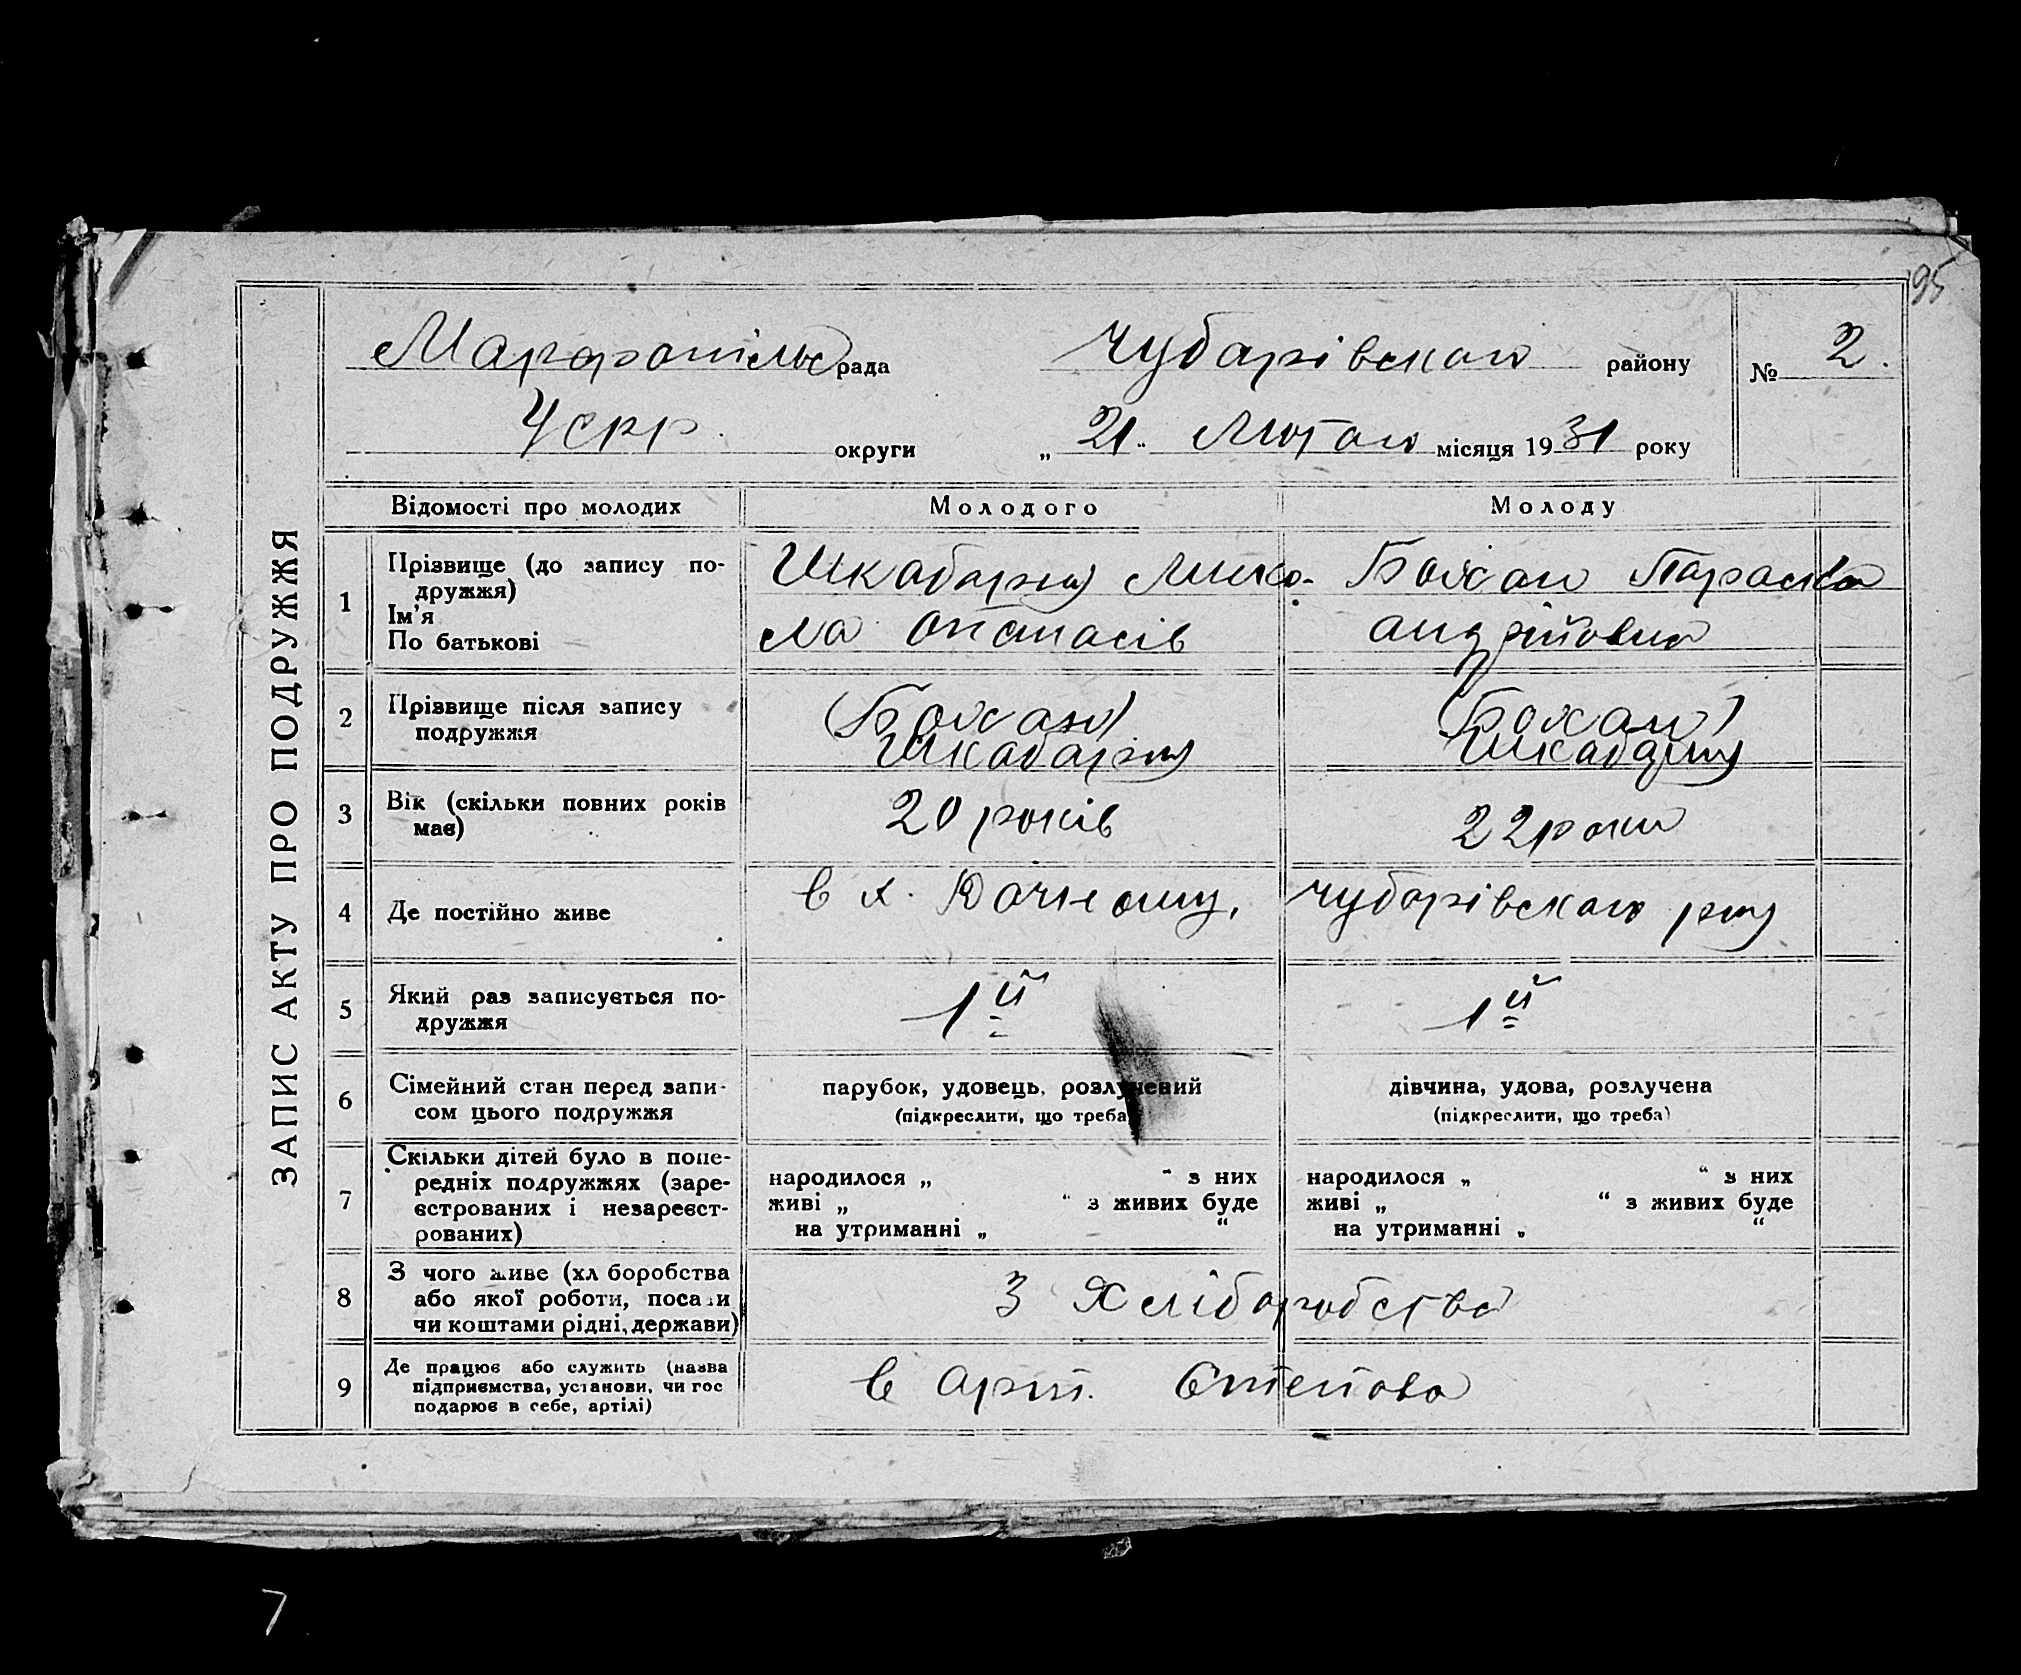 95
Марфопільс рада Чубарівського району № 2.
УСРР. округи „ 21 " Лютого місяця 1931 року
ЗАПИС АКТУ ПРО ПОДРУЖЖЯ
Відомості про молодих Молодого Молоду
1 Прізвище (до запису по-
дружжя)
Ім'я
По батькові
Шкабарня Мико-
ла Опанасів
Бохан Параска
Андрійовна
2 Прізвище після запису
подружжя
(Бохан)
Шкабарня
(Бохан)
Шкабарня
3 Вік (скільки повних років
має)
20 років
22 роки
4 Де постійно живе в х. Дачному, Чубарівського р-ну
5 Який раз записується по-
дружжя
1й
1й
6 Сімейний стан перед запи-
сом цього подружжя
парубок, удовець, розлучений
(підкреслити, що треба)
дівчина, удова, розлучена
(підкреслити, що треба)
7 Скільки дітей було в попе-
редніх подружжях (заре-
єстрованих і незареєст-
рованих)
народилося „ “ з них
живі „ “ з живих буде
на утриманні „ “
народилося „ “ з них
живі „ “ з живих буде
на утриманні „ “
8 З чого живе (хл боробства
або якої роботи, посади
чи коштами рідні, держави)
З Хліборобства
9 Де працює або служить (назва
підприємства, установи, чи гос
подарює в себе, артілі)
в Арт. Степова
7